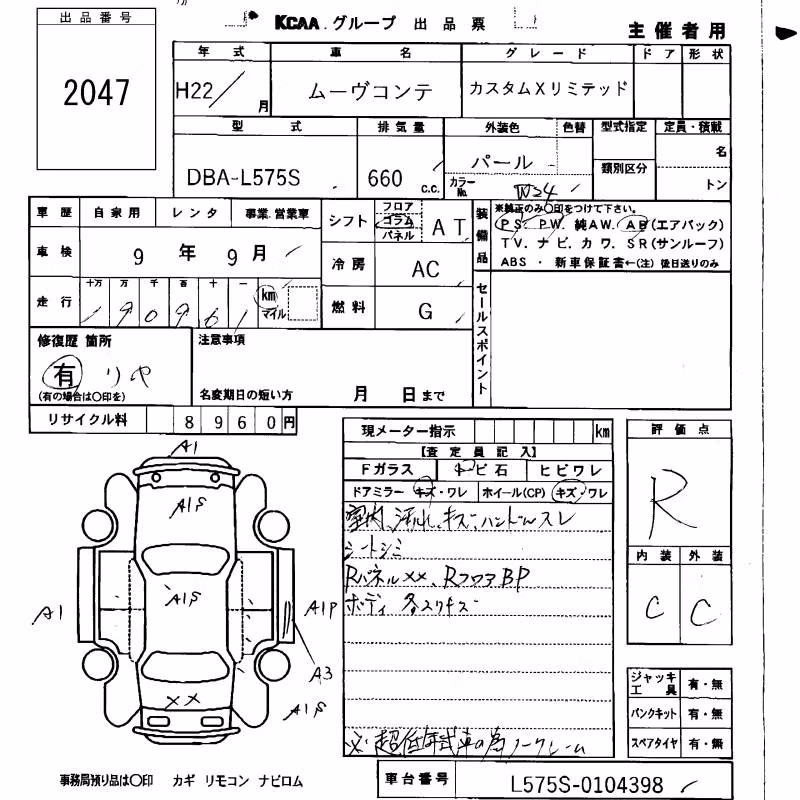 出品番号
2047
KCAA.グループ 出品票
主催者用
年式 車名 グレード ドア 形状
H22/月 ムーヴコンテ カスタムXリミテッド
型式 排気量 外装色 色替 型式指定 定員・積載
DBA-L575S 660 c.c. パール 類別区分 名
カラーNo. W24 トン
車歴 自家用 レンタ 事業.営業車
車検 9年9月
走行 十万 万 千 百 十 一
190961 km マイル
シフト フロア コラム パネル AT
冷房 AC
燃料 G
装備品 ※純正のみ○印をつけて下さい。
PS. PW. 純AW. AB(エアバック)
TV. ナビ. カワ. SR(サンルーフ)
ABS ・ 新車保証書←(注) 後日送りのみ
セールスポイント
修復歴 箇所
有 リヤ
(有の場合は○印を)
注意事項
名変期日の短い方 月 日まで
リサイクル料 8960円
現メーター指示 km
【査定員記入】
Fガラス トビ石 ヒビワレ
ドアミラー キズ・ワレ ホイール(CP) キズ・ワレ
室内、汚れ、キズ、ハンドルスレ
シートシミ
Rパネル××、RフロアBP
ボディ 各スリキズ
※超低年式車の為ノークレーム
評価点
R
内装 外装
C C
ジャッキ工具 有・無
パンクキット 有・無
スペアタイヤ 有・無
A1
A1S
A1S
A1
A1P
A3
A1S
××
事務局預り品は○印 カギ リモコン ナビロム
車台番号 L575S-0104398